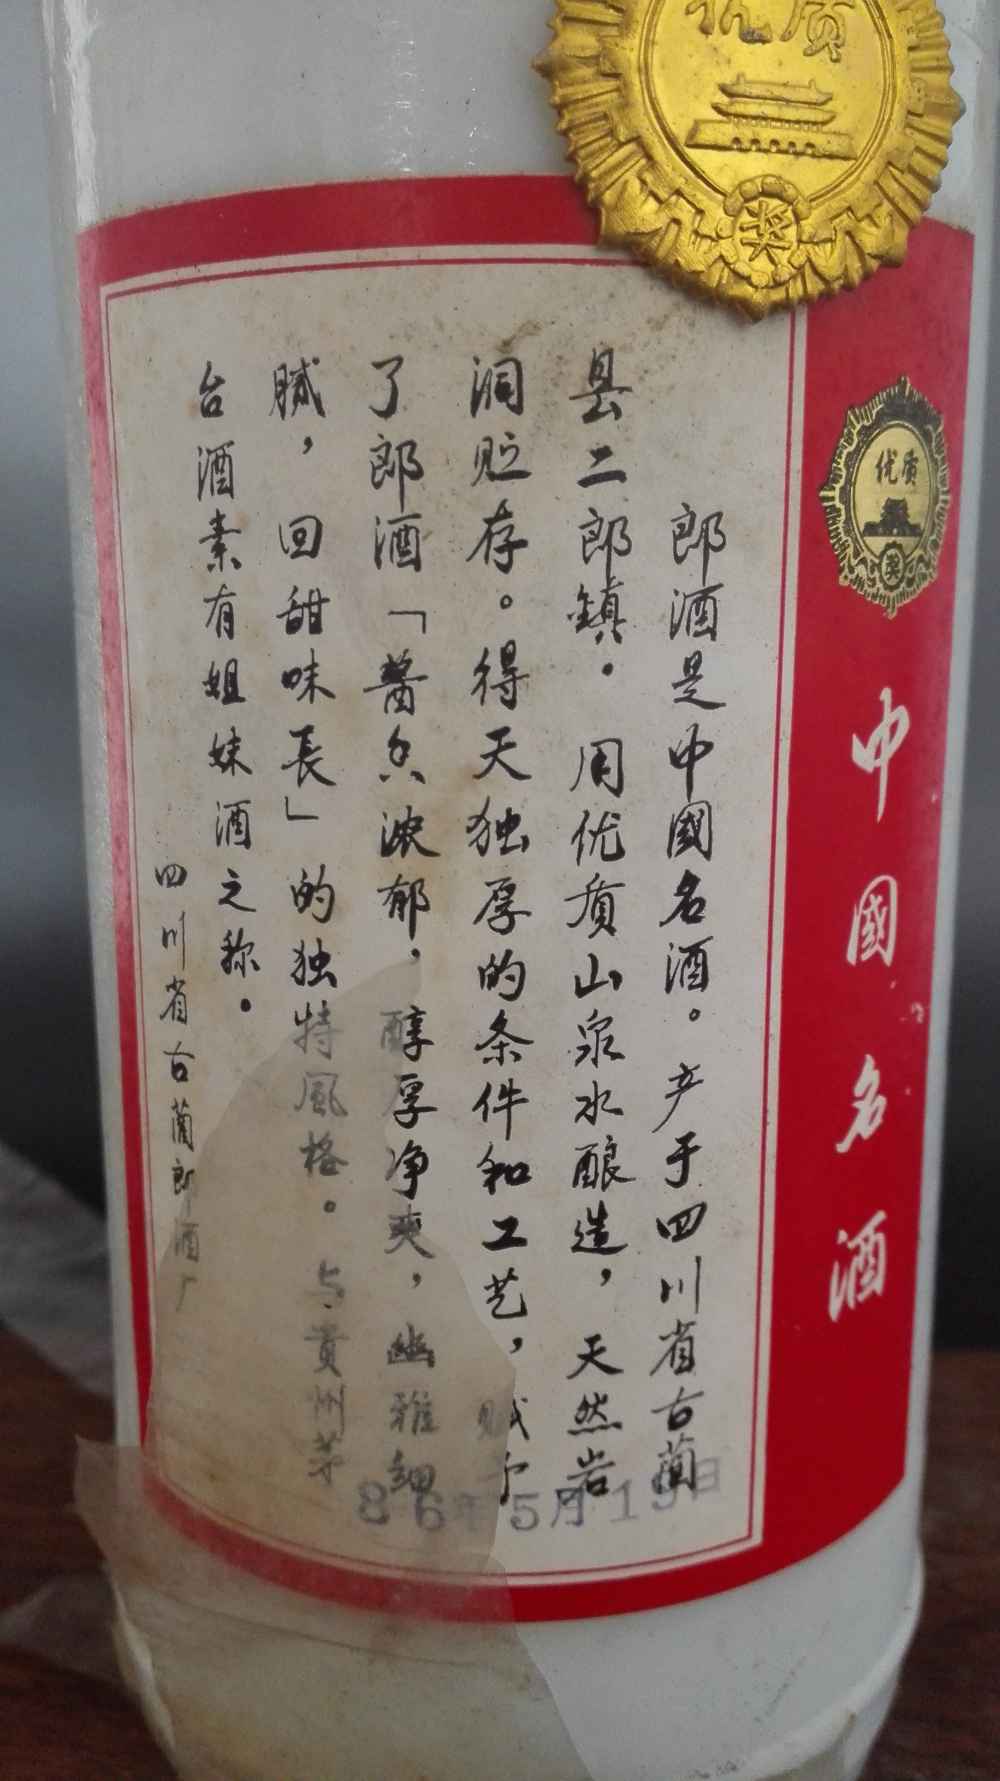 优质
奖
优质
奖
中國名酒
郎酒是中國名酒。产于四川省古蔺
县二郎鎮。用优质山泉水酿造，天然岩
洞贮存。得天独厚的条件和工艺，赋予
了郎酒「醬香浓郁，醇厚净爽，幽雅细
腻，回甜味長」的独特風格。与貴州茅
台酒素有姐妹酒之称。
四川省古蔺郎酒厂
86年5月19日